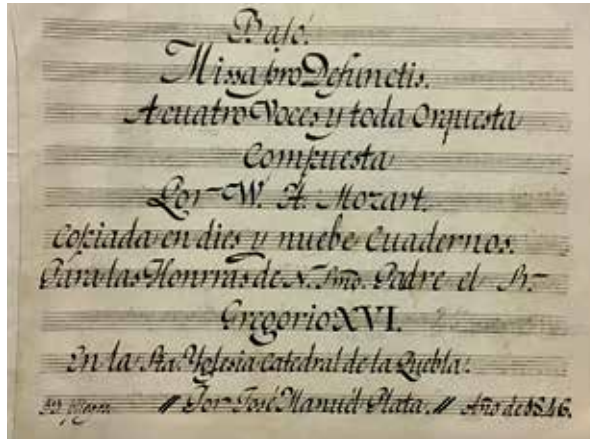 Bajo.
Missa pro Defunctis.
A cuatro Voces y toda Orquesta
Compuesta
Por W. A. Mozart.
Copiada en dies y nuebe Cuadernos.
Para las Honrras de N. Smo. Padre el Sr.
Gregorio XVI.
En la Sta. Yglesia Catedral de la Puebla.
// Por José Manuél Plata. // Año de 1846.